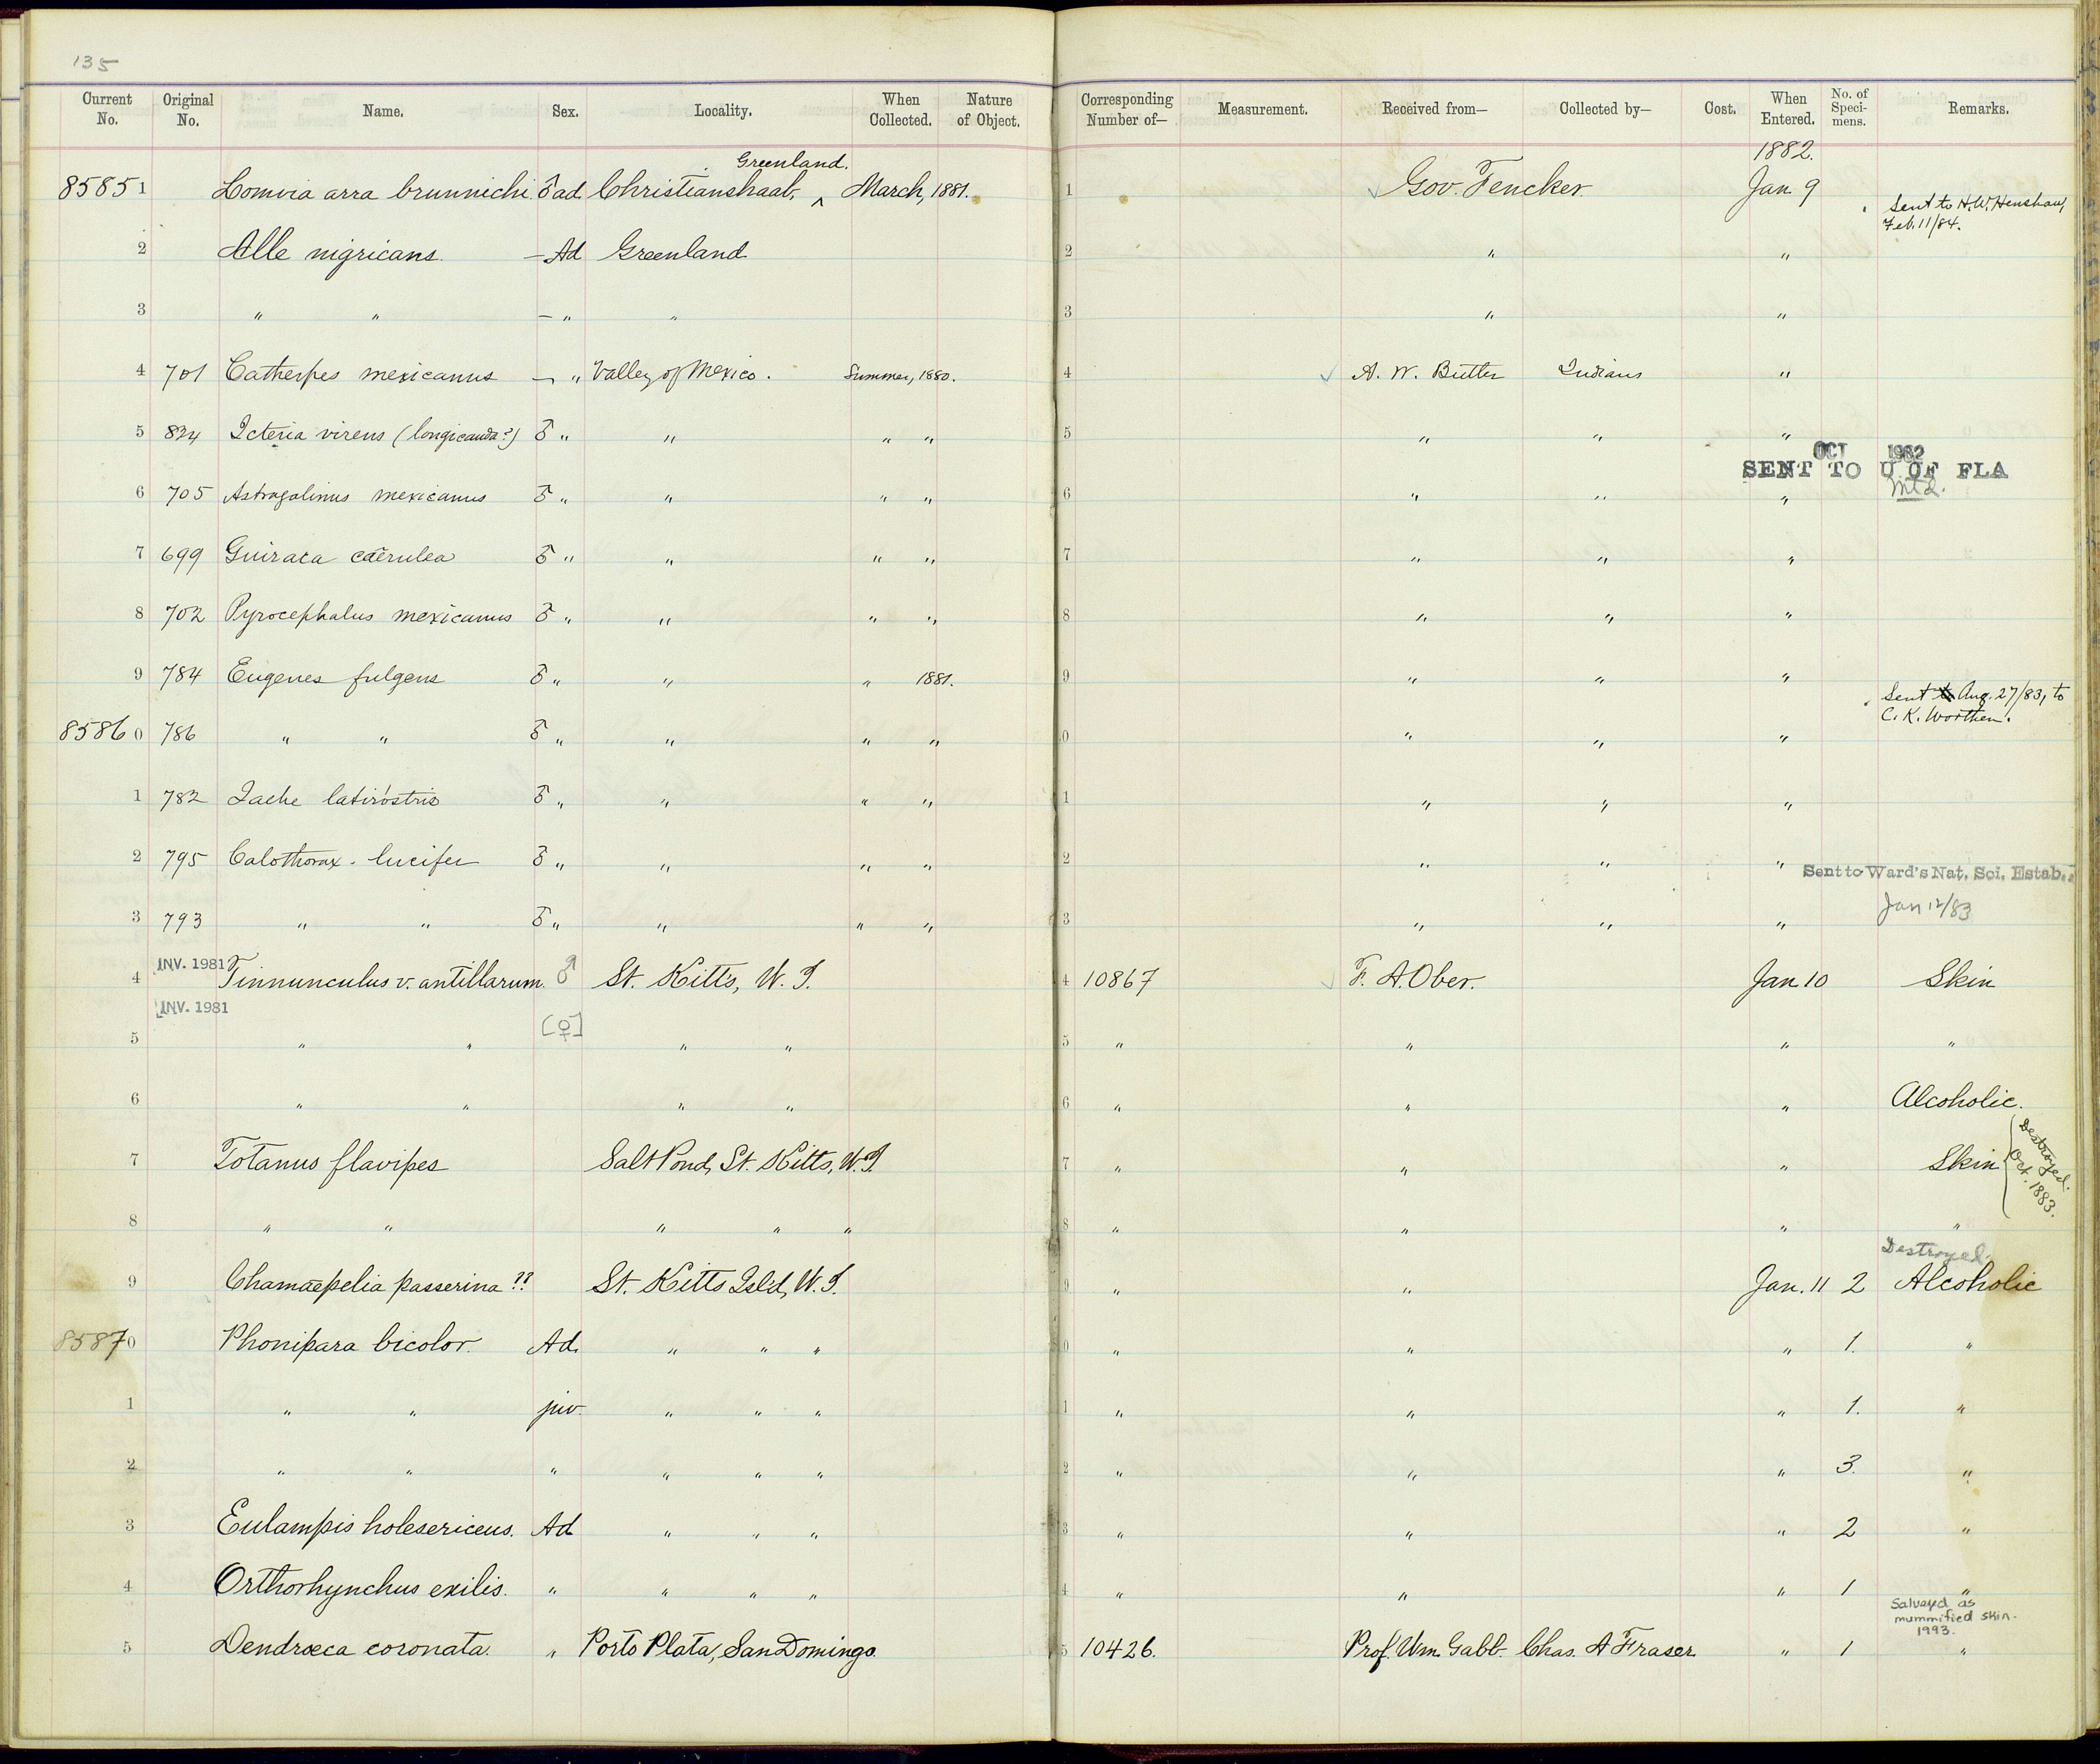 135
Current No. Original No. Name. Sex. Locality. When Collected. Nature of Object. Corresponding Number of— Measurement. Received from— Collected by— Cost. When Entered. No. of Specimens. Remarks.
Greenland. 1882.
85851 Lomvia arra brunnichi. ♂ ad. Christianshaab, ^ March, 1881. 1 Gov. Fencker. Jan 9 Sent to H. W. Henshaw, Feb. 11/84.
2 Alle nigricans. — Ad Greenland 2 " "
3 " " — " " 3 " "
4 701 Catherpes mexicanus — " Valley of Mexico. Summer, 1880. 4 A. W. Butler Indians "
5 834 Icteria virens (longicauda?) ♂ " " " " 5 " " "
OCT 1962
SENT TO U OF FLA
6 705 Astragalinus mexicanus ♂ " " " " 6 " " "
7 699 Guiraca caerulea ♂ " " " " 7 " " "
8 702 Pyrocephalus mexicanus ♂ " " " " 8 " " "
9 784 Eugenes fulgens ♂ " " " 1881. 9 " " " Sent Aug. 27/83, to C. K. Worthen.
85860 786 " " ♂ " " " " 0 " " "
1 782 Iache latirostris ♂ " " " " 1 " " "
2 795 Calothorax lucifer ♂ " " " " 2 " " " Sent to Ward's Nat. Sci. Estab.
Jan 12/83
3 793 " " ♂ " " " " 3 " " "
INV. 1981
4 Tinnunculus v. antillarum. ♂ St. Kitts, W. I. 4 10867 F. A. Ober. Jan 10 Skin
INV. 1981
5 " " [♀] " " 5 " " " "
6 " " " " 6 " " " Alcoholic.
7 Totanus flavipes Salt Pond, St. Kitts, W. I. 7 " " " Skin Destroyed. Oct. 1883.
8 " " " " " 8 " " " "
Destroyed.
9 Chamaepelia passerina ?? St. Kitts Isl'd, W. I. 9 " " Jan. 11 2 Alcoholic
85870 Phonipara bicolor. Ad. " " " 0 " " " 1. "
1 " " juv. " " " 1 " " " 1. "
2 " " " " " " 2 " " " 3. "
3 Eulampis holosericeus. Ad " " " 3 " " " 2 "
4 Orthorhynchus exilis. " " " " 4 " " " 1 "
Salvaged as mummified skin. 1993.
5 Dendroeca coronata. " Porto Plata, San Domingo. 5 10426. Prof. Wm. Gabb. Chas. A Fraser " 1 "